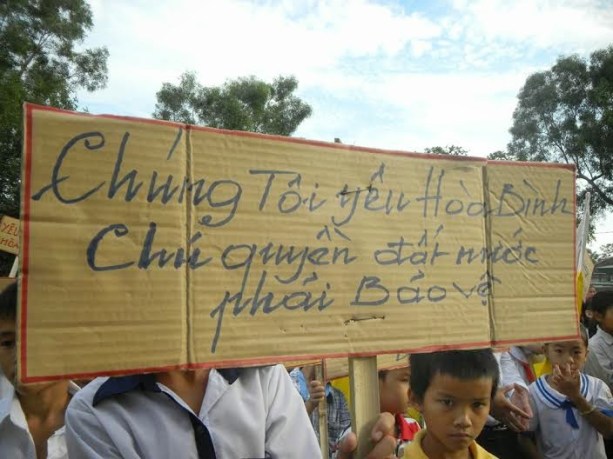 Chúng Tôi yêu Hòa Bình
Chủ quyền đất nước
phải Bảo vệ